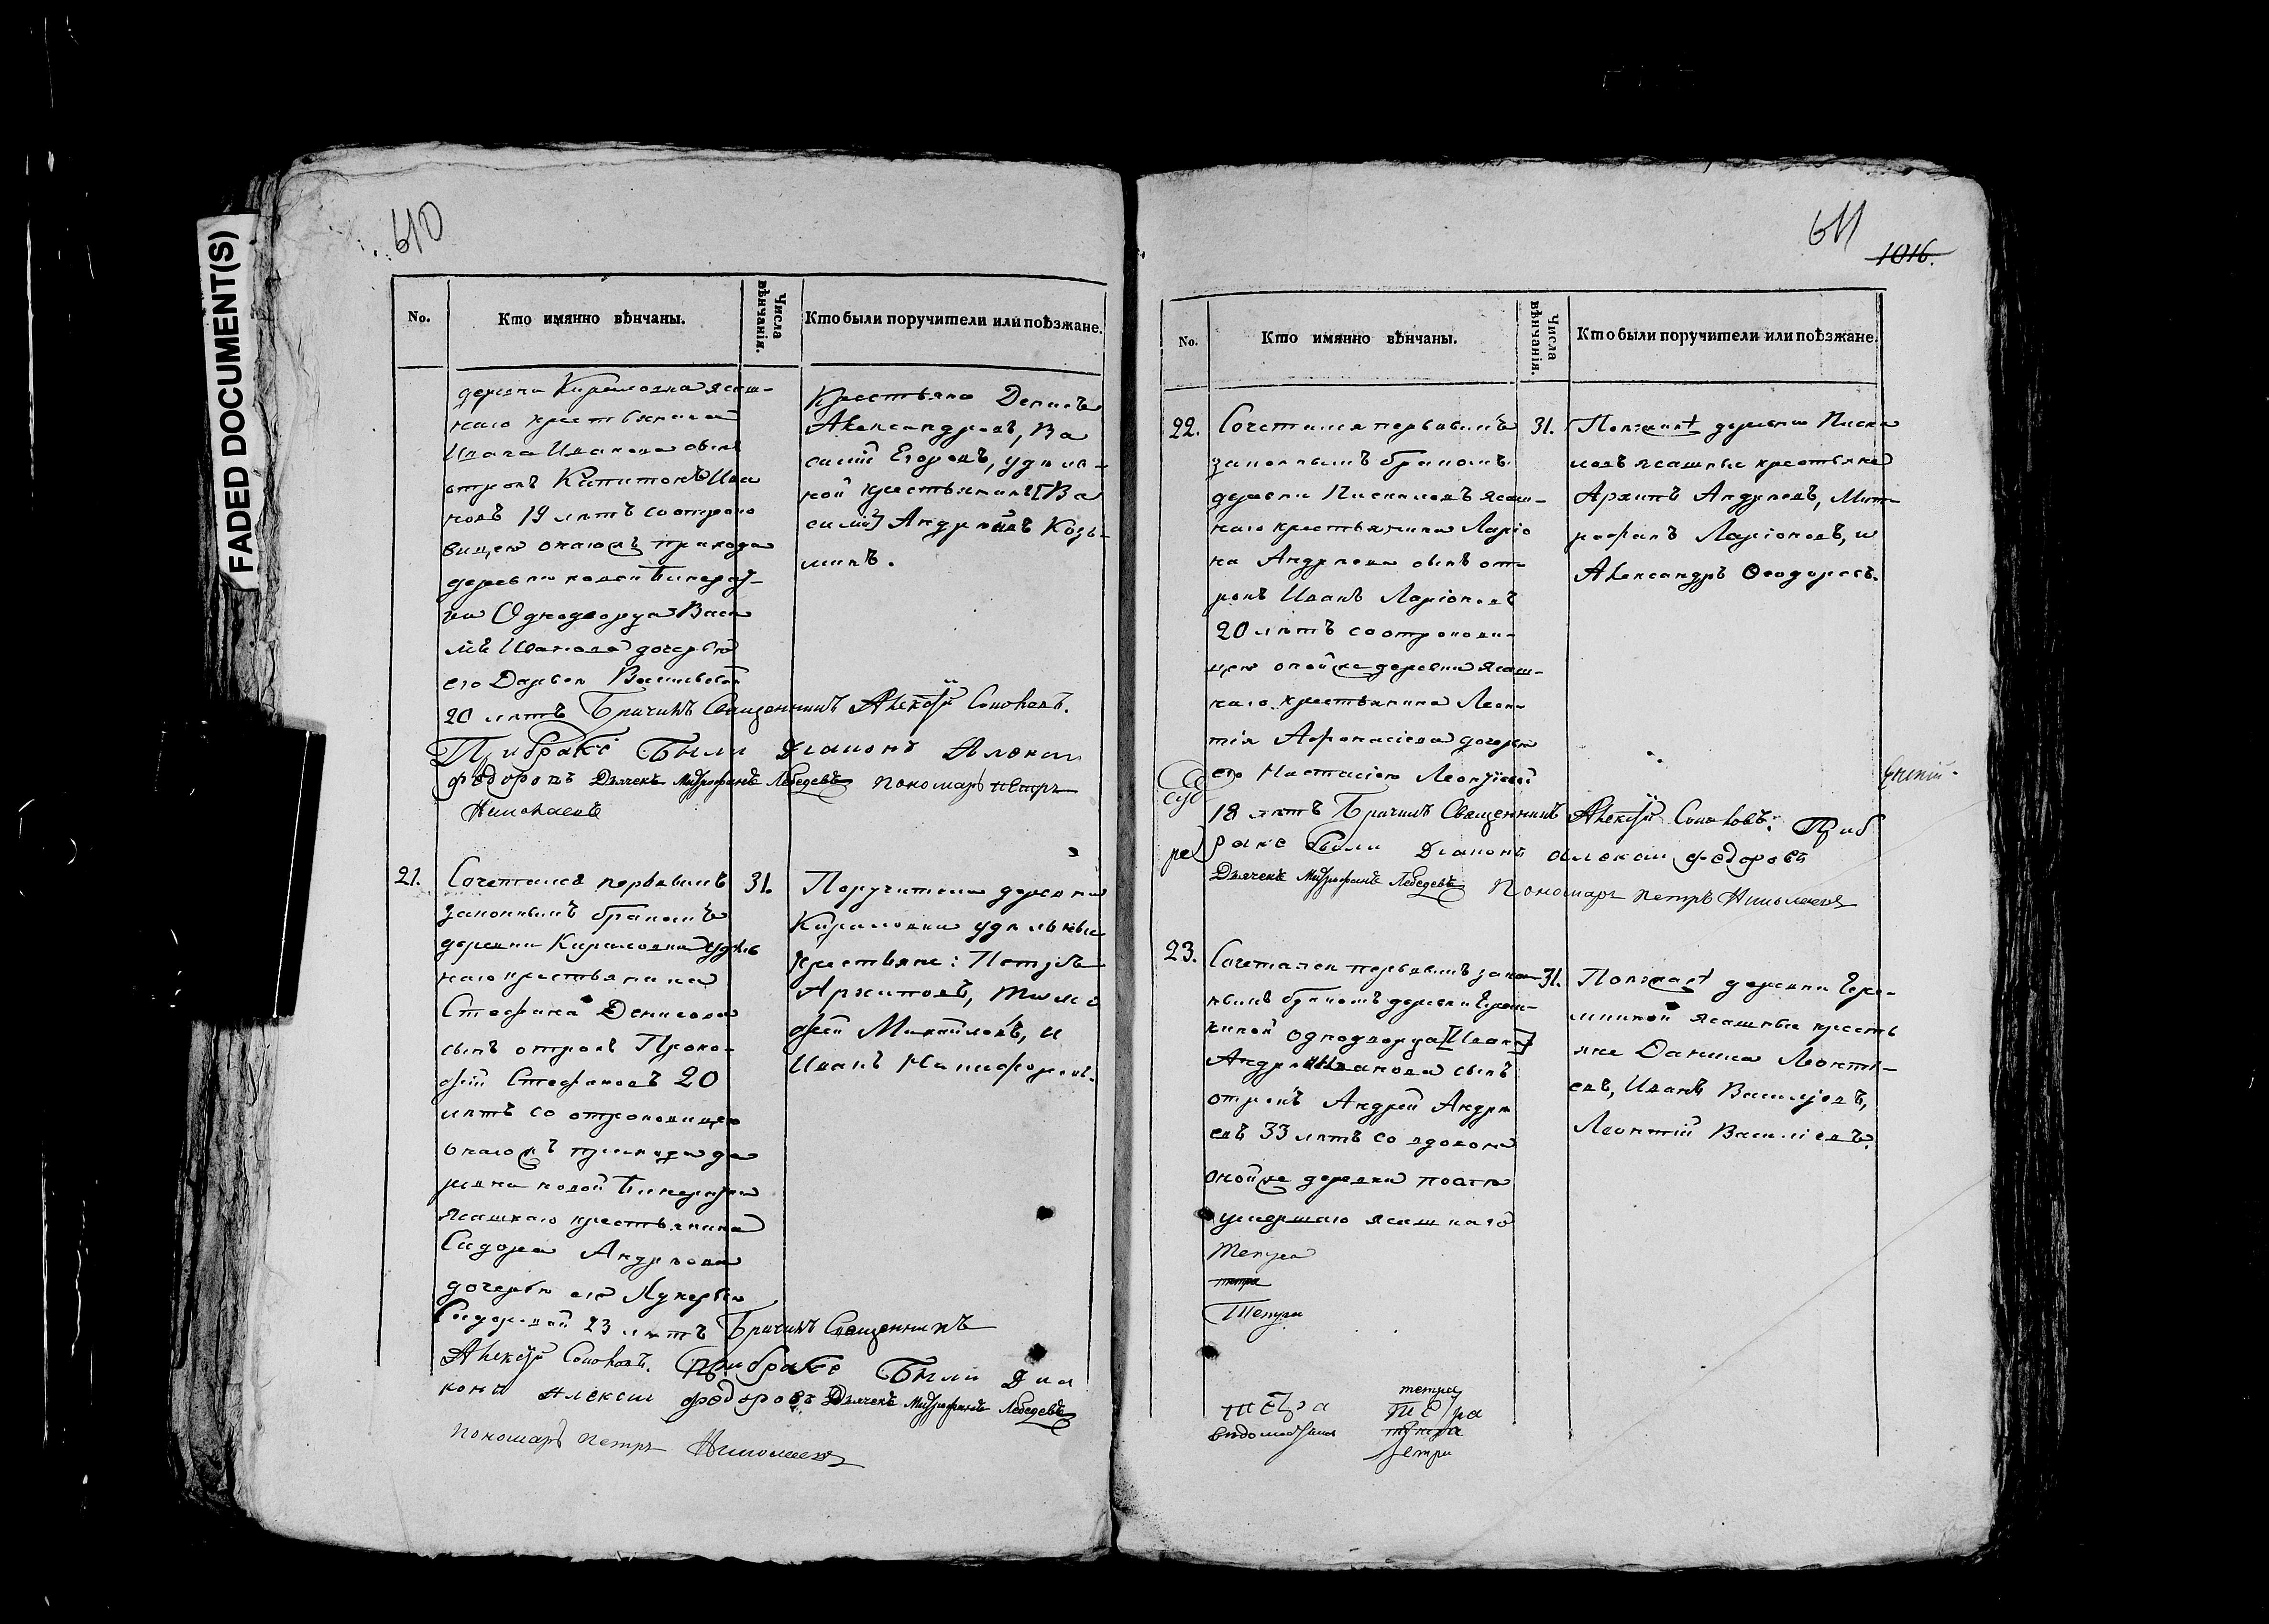 FADED DOCUMENT(S)
610
No.
Кто имянно вѣнчаны.
Числа вѣнчанія.
Кто были поручители или поѣзжане.
деревни Кирѣловка ясаш-
наго крестьянина
Ивана Иванова сынъ
отрокъ Капитонъ Ива
новъ 19 лѣтъ со отроко
вицею онагожъ прихода
деревни новой Бинара-
ки Однодворца Васи
лія Иванова дочерью
его Дарьею Васильевой
20 лѣтъ Брачилъ Священникъ Алексѣй Соколовъ.
При бракѣ были Діаконъ Алексѣй
Федоровъ Дьячекъ Митрофанъ Лебедевъ пономарь петръ
Николаевъ
Крестьяне Денисъ
Александровъ, Ва
силій Егоровъ, удѣль-
ной крестьянинъ [Ва
силій] Андрѣевъ Козь-
минъ.
21.
Сочетался первымъ
законнымъ бракомъ
деревни Кирѣловки удѣль
наго крестьянина
Стефана Денисова
сынъ отрокъ Проко-
фій Стефановъ 20
лѣтъ со отроковицею
онагожъ прихода де
ревни новой Бинарадки
ясашнаго крестьянина
Сидора Андрѣева
дочерью его Лукерью
Сидоровой 23 лѣтъ Брачилъ Священникъ
Алексѣй Соколовъ. При бракѣ Были Диа
конъ Алексѣй Федоровъ Дьячекъ Митрофанъ Лебедевъ
пономарь петръ Николаевъ
31.
Поручители деревни
Кирѣловки удѣльные
крестьяне: Петръ
Архиповъ, Тимо
фей Михайловъ, и
Иванъ Никифоровъ.
611
1016.
No.
Кто имянно вѣнчаны.
Числа вѣнчанія.
Кто были поручители или поѣзжане.
22.
Сочетался первымъ
законнымъ бракомъ
деревни Пискаловъ ясаш-
наго крестьянина Ларіо
на Андрѣева сынъ от-
рокъ Иванъ Ларіоновъ
20 лѣтъ со отрокови-
цею тойже деревни ясаш-
наго крестьянина Леон-
тія Афонасіева дочерью
его Настасіею Леонтіевой
18 лѣтъ Брачилъ Священникъ Алексѣй Соколовъ. При б
ракѣ были Діаконъ Алексѣй Федоровъ
Дьячекъ Митрофанъ Лебедевъ Пономарь петръ Николаевъ
31.
деревни Писка
ловъ ясашные крестьяне
Архипъ Андрѣевъ, Мит-
рофанъ Ларіоновъ, и
Александръ Ѳеодоровъ.
23.
Сочетался первымъ закон-
нымъ бракомъ деревни
Однодворца [Ивана]
Андрѣя Иванова сынъ
отрокъ Андрей Андрѣ
евъ 33 лѣтъ со вдовою
тойже деревни послѣ
умершаго ясашнаго
31.
деревни
ясашные кресть
яне Данила Леонть-
евъ, Иванъ Васильевъ,
Леонтій Васильевъ.